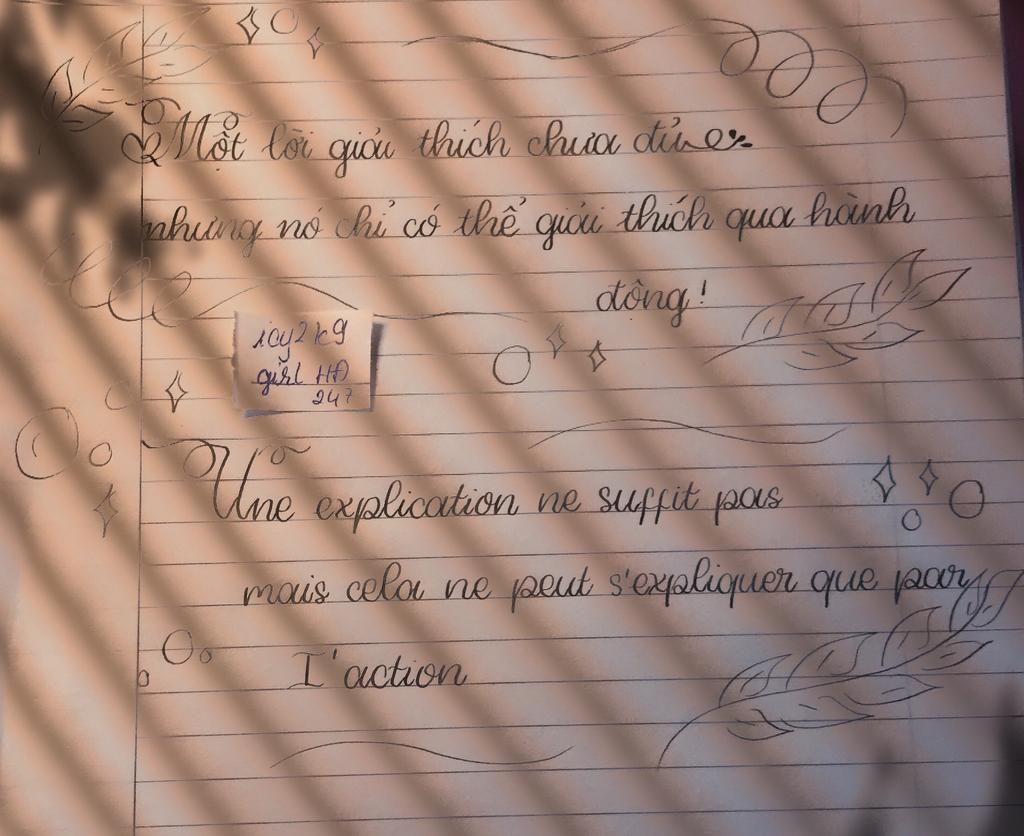 Một lời giải thích chưa đủ
nhưng nó chỉ có thể giải thích qua hành
động!
icy2k9
girl HĐ
247
Une explication ne suffit pas
mais cela ne peut s'expliquer que par
I'action